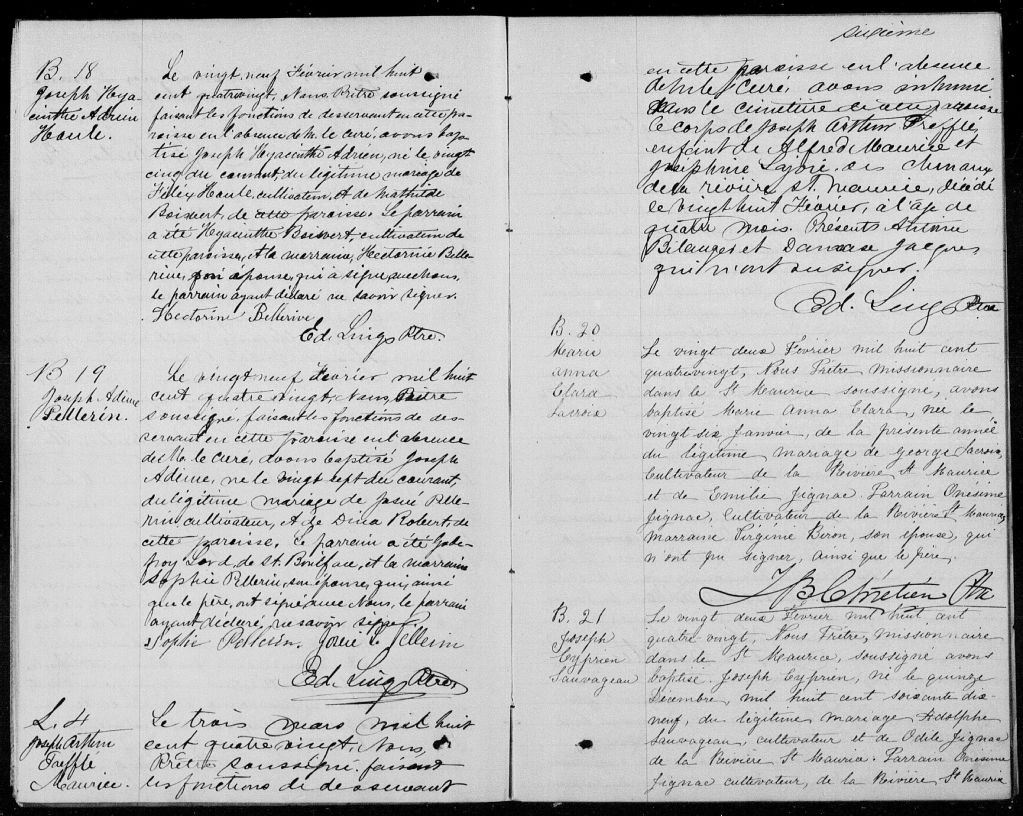 B. 18
Joseph Hya-
cinthe Adrien
Houle.
Le vingt-neuf Février mil huit
cent quatrevingt, Nous, Prêtre soussigné
faisant les fonctions de desservant en cette pa-
roisse en l'absence de M. le curé, avons bap-
tisé Joseph Hyacinthe Adrien, né le vingt
cinq du courant, du légitime mariage de
Félix Houle, cultivateur, et de Mathilde
Boisvert, de cette paroisse. Le parrain
a été Hyacinthe Boisvert, cultivateur de
cette paroisse, et la marraine, Hectorine Belle
rive, son épouse, qui a signé avec Nous,
le parrain ayant déclaré ne savoir signer.
Hectorine Bellerive
Ed. Ling Ptre.
B 19
Joseph Adine
Pellerin.
Le vingt-neuf Février mil huit
cent quatre vingt, Nous Prêtre
soussigné, faisant les fonctions de des-
servant en cette paroisse en l'absence
de M. le curé, avons baptisé Joseph
Adine, né le vingt sept du courant,
du légitime mariage de Josué Pelle
rin, cultivateur, et de Dina Robert, de
cette paroisse, le parrain a été Gode-
froy Lord, de St. Boniface, et la marraine
Sophie Pellerin, son épouse, qui, ainsi
que le père, ont signé avec Nous, le parrain
ayant déclaré ne savoir signer.
Sophie Pellerin. Josué Pellerin
Ed. Ling Ptre.
L. 4
Joseph Arthur
Trefflé
Maurice.
Le trois mars mil huit
cent quatre vingt, Nous,
Prêtre soussigné, faisant
les fonctions de desservant
sixième
en cette paroisse en l'absence
de M. le Curé, avons inhumé
dans le cimetière de cette paroisse
le corps de Joseph Arthur Trefflé,
enfant de Alfred Maurice et
Joséphine Lajoie, des chenaux
de la rivière St. Maurice, décédé
le vingt huit Février, à l'âge de
quatre mois. Présents Antoine
Bélanger et Damase Jacques
qui n'ont su signer.
Ed. Ling Ptre
B. 20
Marie
Anna
Clara
Lacroix
Le vingt deux Février mil huit cent
quatrevingt, Nous Prêtre missionnaire
dans le St Maurice soussigné, avons
baptisé Marie Anna Clara, née le
vingt six Janvier, de la présente année
du légitime mariage de George Lacroix,
Cultivateur de la Rivière St Maurice
et de Emilie Gignac. Parrain Onésime
Gignac, Cultivateur de la Rivière St Maurice,
Marraine Virginie Biron, son épouse, qui
n'ont pu signer, ainsi que le père.
J B Chrétien Ptre
B. 21
Joseph
Cyprien
Sauvageau
Le vingt deux Février mil huit cent
quatre vingt, Nous Prêtre, missionnaire
dans le St Maurice, soussigné avons
baptisé Joseph Cyprien, né le quinze
Décembre, mil huit cent soixante dix-
neuf, du légitime mariage Adolphe
Sauvageau, cultivateur et de Odile Gignac
de la Rivière St Maurice. Parrain Onésime
Gignac cultivateur, de la Rivière St Maurice